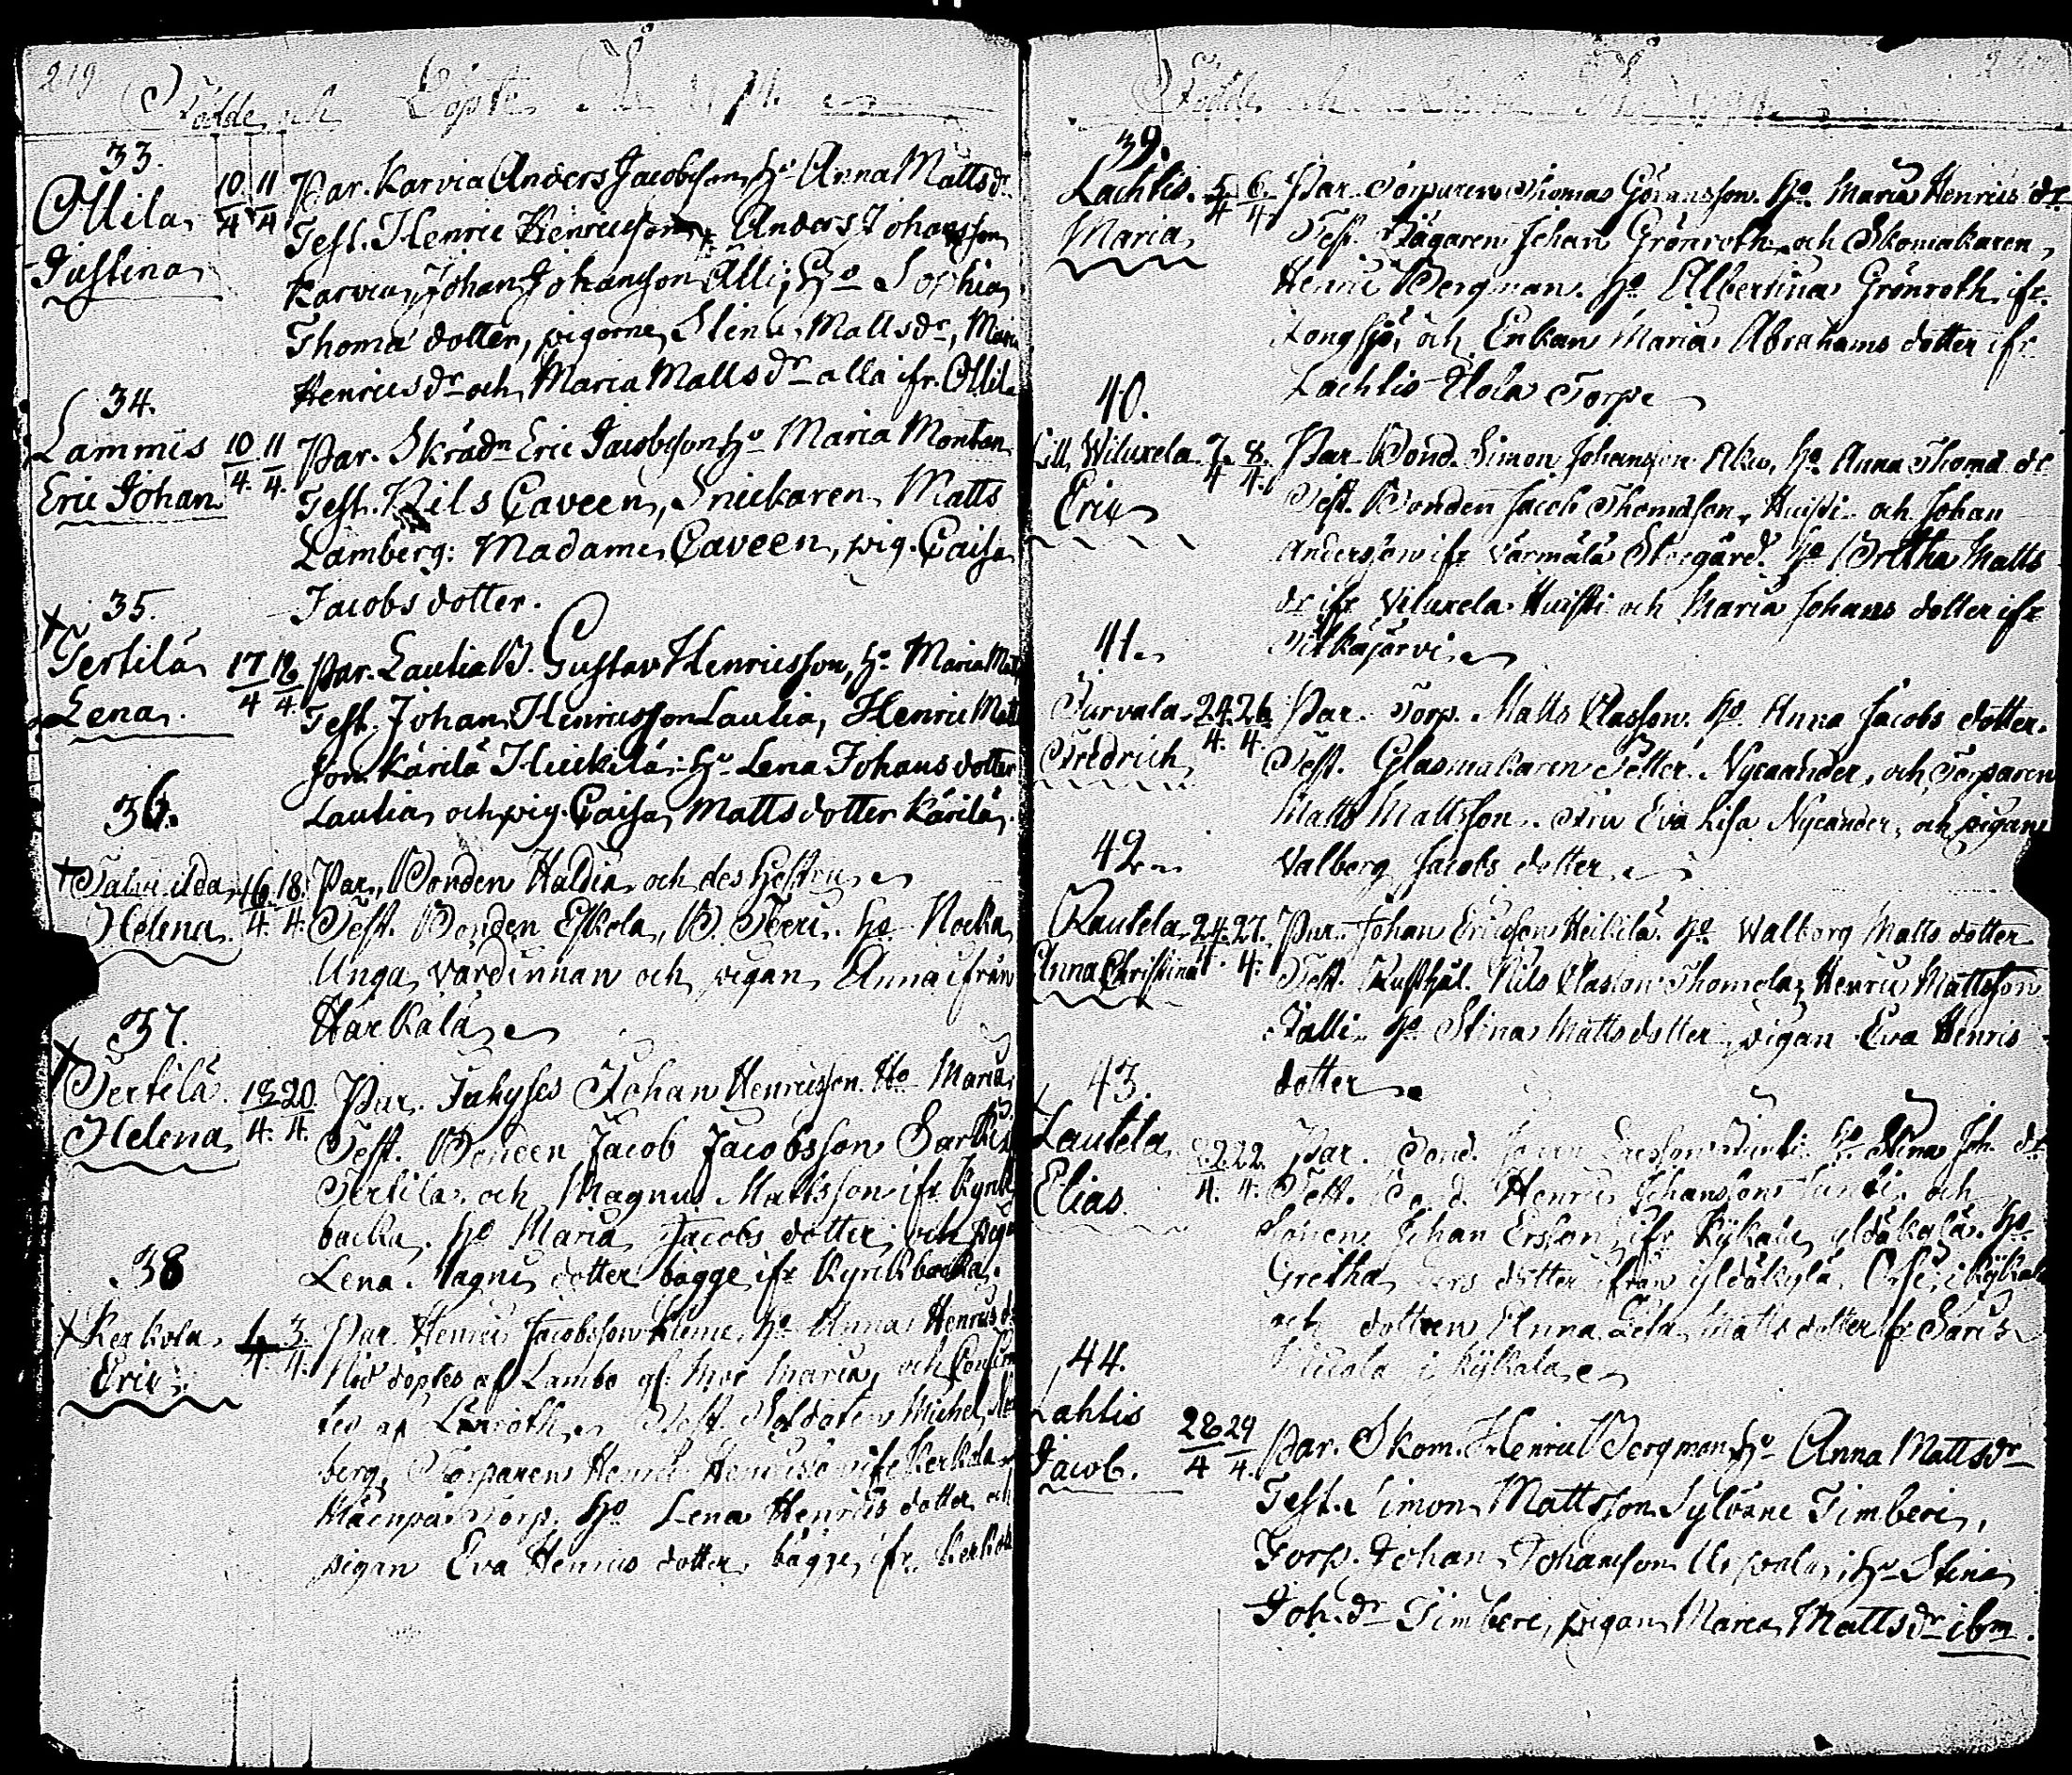 219
Födde och Döpte
33.
Ollila 10/4 11/4 Par. Karvia Anders Jacobsson, h:o Anna Matts dr
Justina Test. Henric Henricsson, Anders Johansson
Karvia, Johan Johansson Alli; H:o Sophia
Thomæ dotter, pigorne, Stina Matts dr, Maria
Henrics dr och Maria Matts dr alla ifr. Ollila
34.
Lammis 10/4. 11/4. Par. Skrädn Eric Jacobsson h:o Maria Montan
Eric Johan Test. Nils Caveen, Snickaren Matts
Lamberg: Madame Caveen, pig. Caisa
Jacobs dotter.
35.
Tertilä 17/4 18/4. Par. Lautia B. Gustav Henricsson, h:o Maria Matts
Lena. Test. Johan Henricsson Lautia, Henric Matts
son Kärilä Heikilä: h:o Lena Johans dotter
Lautia och pig. Caisa Matts dotter Kärilä.
36.
Helena. 16/4. 18/4. Par. Bonden Haldia och des Hustru
Test. Bonden Eskola, B. Teeri. h:o Nocka
Unga värdinnan och pigan Anna ifrån
Harkälä
37.
Tertilä 18/4. 20/4. Par. Johan Henricsson. H:o Maria
Helena Test. Bonden Jacob Jacobsson
Tertilä och Magnus Mattsson ifr. Kyrck
backa. h:o Maria Jacobs dotter, och pig.
Lena Magnus dotter bägge ifr Kyrckbacka.
38
Kerkola 4/4. 3/4. Par. Henric Jacobsson Kleme, h:o Anna Henrics dr
Eric. Nöd döptes af Lambo gl. Mor Maria, och Confirme
ted af Lenroth. Test. Soldaten Michel
berg, Torparen Henric Henricsson ifr Kerkola
Mäenpää Torp. h:o Lena Henrics dotter och
pigan Eva Henrics dotter, bägge ifr. Kerkola
Födde
39.
Lachlis. 5/4 6/4. Par. Torparen Thomas Göransson. h:o Maria Henrics dr
Maria Test. Jägaren Johan Grönroth och Skomakaren
Henric Bergman. h:o Albertina Grönroth ifr.
Långsjö, och Enkan Maria Abrahams dotter ifr.
Lachlis Torpe
40.
Lill Wiluxela 7/4 8/4. Par. Bond. Simon Johansson h:o Anna Thomæ dr
Eric Test. Bonden Jacob Thomasson, Huisti och Johan
Andersson ifr Värmälä h:o Gretha Matts
dr ifr Viluxela Huisti och Maria Johans dotter ifr
Pitkäjärvi
41.
Turvala 24/4. 26/4. Par. Torp. Matts Classon. h:o Anna Jacobs dotter.
Fredrich Test. Glasmakaren Petter Nycander, och Torparen
Matts Mattsson. Fru Eva Lisa Nycander, och pigan
Valborg Jacobs dotter
42
Rautela 24/4. 27/4. Par. Johan Ericsson Heikilä. h:o Walborg Matts dotter
Anna Christina Test. Rusthål. Nils Classon Thomola, Henric Mattsson
Talli. h:o Stina Matts dotter pigan Eva Henrics
dotter
43.
Lautela 22/4. Par. Bond. h:o Stina Joh. dr
Elias. Test. Bond. Henric Johansson och
Johan Ersson ifr Kykälä yldäkylä. h:o
Gretha dotter ifrån yldäkylä, i Kykälä
och dottren Anna Matts dotter fr
i Kykälä
44.
Lahlis 28/4 29/4. Par. Skom. Henric Bergman h:o Anna Matts dr
Jacob. Test. Simon Mattsson Sylvane Timberi,
Torp. Johan Johansson h:o Stina
Joh. dr Timberi, pigan Maria Matts dr ibm.